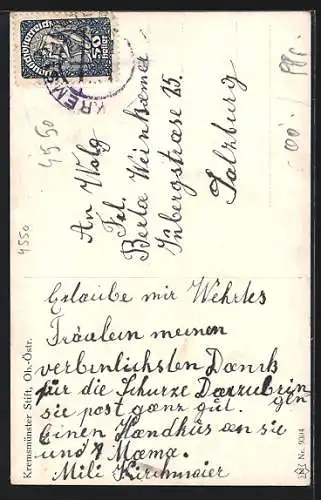 Deutschösterreich
50
KREMSM
4550
4550
An Wolg
Frl.
Berta Weinkamer
Imbergstrasse 25.
Salzburg
Erlaube mir Wehrtes
Fräulein meinen
verbinlichsten Danck
für die Schurze Darzubrin
gen
sie past ganz gut.
Einen Handküs an sie
und Mama.
Mili Kirchmaier
Kremsmünster Stift, Ob.-Östr.
Nr. 9304